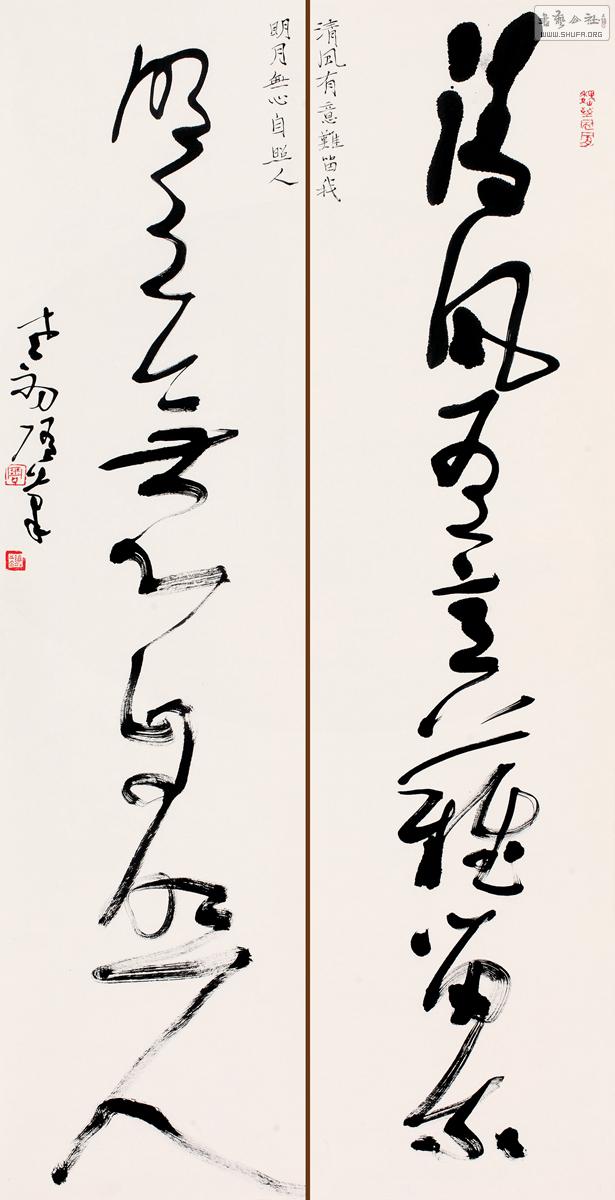 書藝公社
WWW.SHUFA.ORG
清風有意難留我
清風有意難留我
明月無心自照人
明月無心自照人